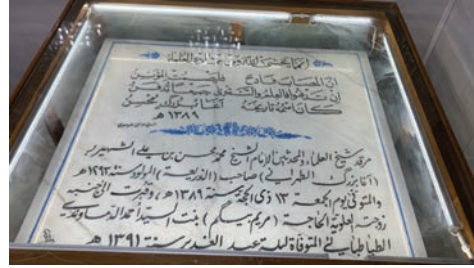 إنما يخشى الله من عباده العلماء
إن المصاب فادح
إن تفقدوا فالعلم والتقوى جميعا
كان منتهى تاريخه آغا بزرك محسن
١٣٨٩ هـ
مرقد شيخ العلماء والمحدثين الإمام الشيخ محمد محسن بن علي الشهير بـ
(آغا بزرك الطهراني) صاحب (الذريعة) المولود سنة ١٢٩٣ هـ
والمتوفى يوم الجمعة ١٣ ذي الحجة سنة ١٣٨٩ هـ، وقبرت
زوجته العلوية الحاجة (مريم بيگم) بنت السيد أحمد الدماوندي
الطباطبائي المتوفاة ليلة عيد الغدير سنة ١٣٩١ هـ